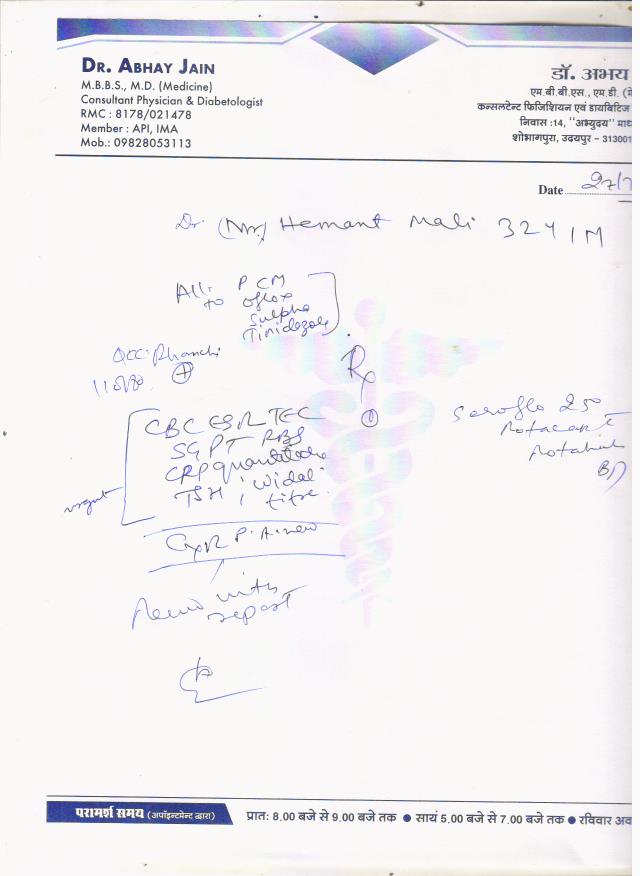 DR. ABHAY JAIN
M.B.B.S., M.D. (Medicine)
Consultant Physician & Diabetologist
RMC : 8178/021478
Member : API, IMA
Mob.: 09828053113
डॉ. अभय
एम.बी.बी.एस., एम.डी. (मे
कन्सलटेन्ट फिजिशियन एवं डायबिटिज
निवास :14, "अभ्युदय" माध
शोभागपुरा, उदयपुर - 31300
Date 27/
Dr. (Mr) Hemant Mali 32Y / M
All. to PCM
oflox
Sulpha
Tinidazole
Rx
occ. Rhonchi
110/80 +
CBC ESR TEC
SGPT RBS
CRP quantitative
TSH ; widal
titre
urgent
CxR P.A. view
Review with
report
1
Seroflo 250
Rotacap
Rotahaler
BD
परामर्श समय (अपॉइन्टमेन्ट द्वारा)
प्रात: 8.00 बजे से 9.00 बजे तक ● सायं 5.00 बजे से 7.00 बजे तक ● रविवार अव